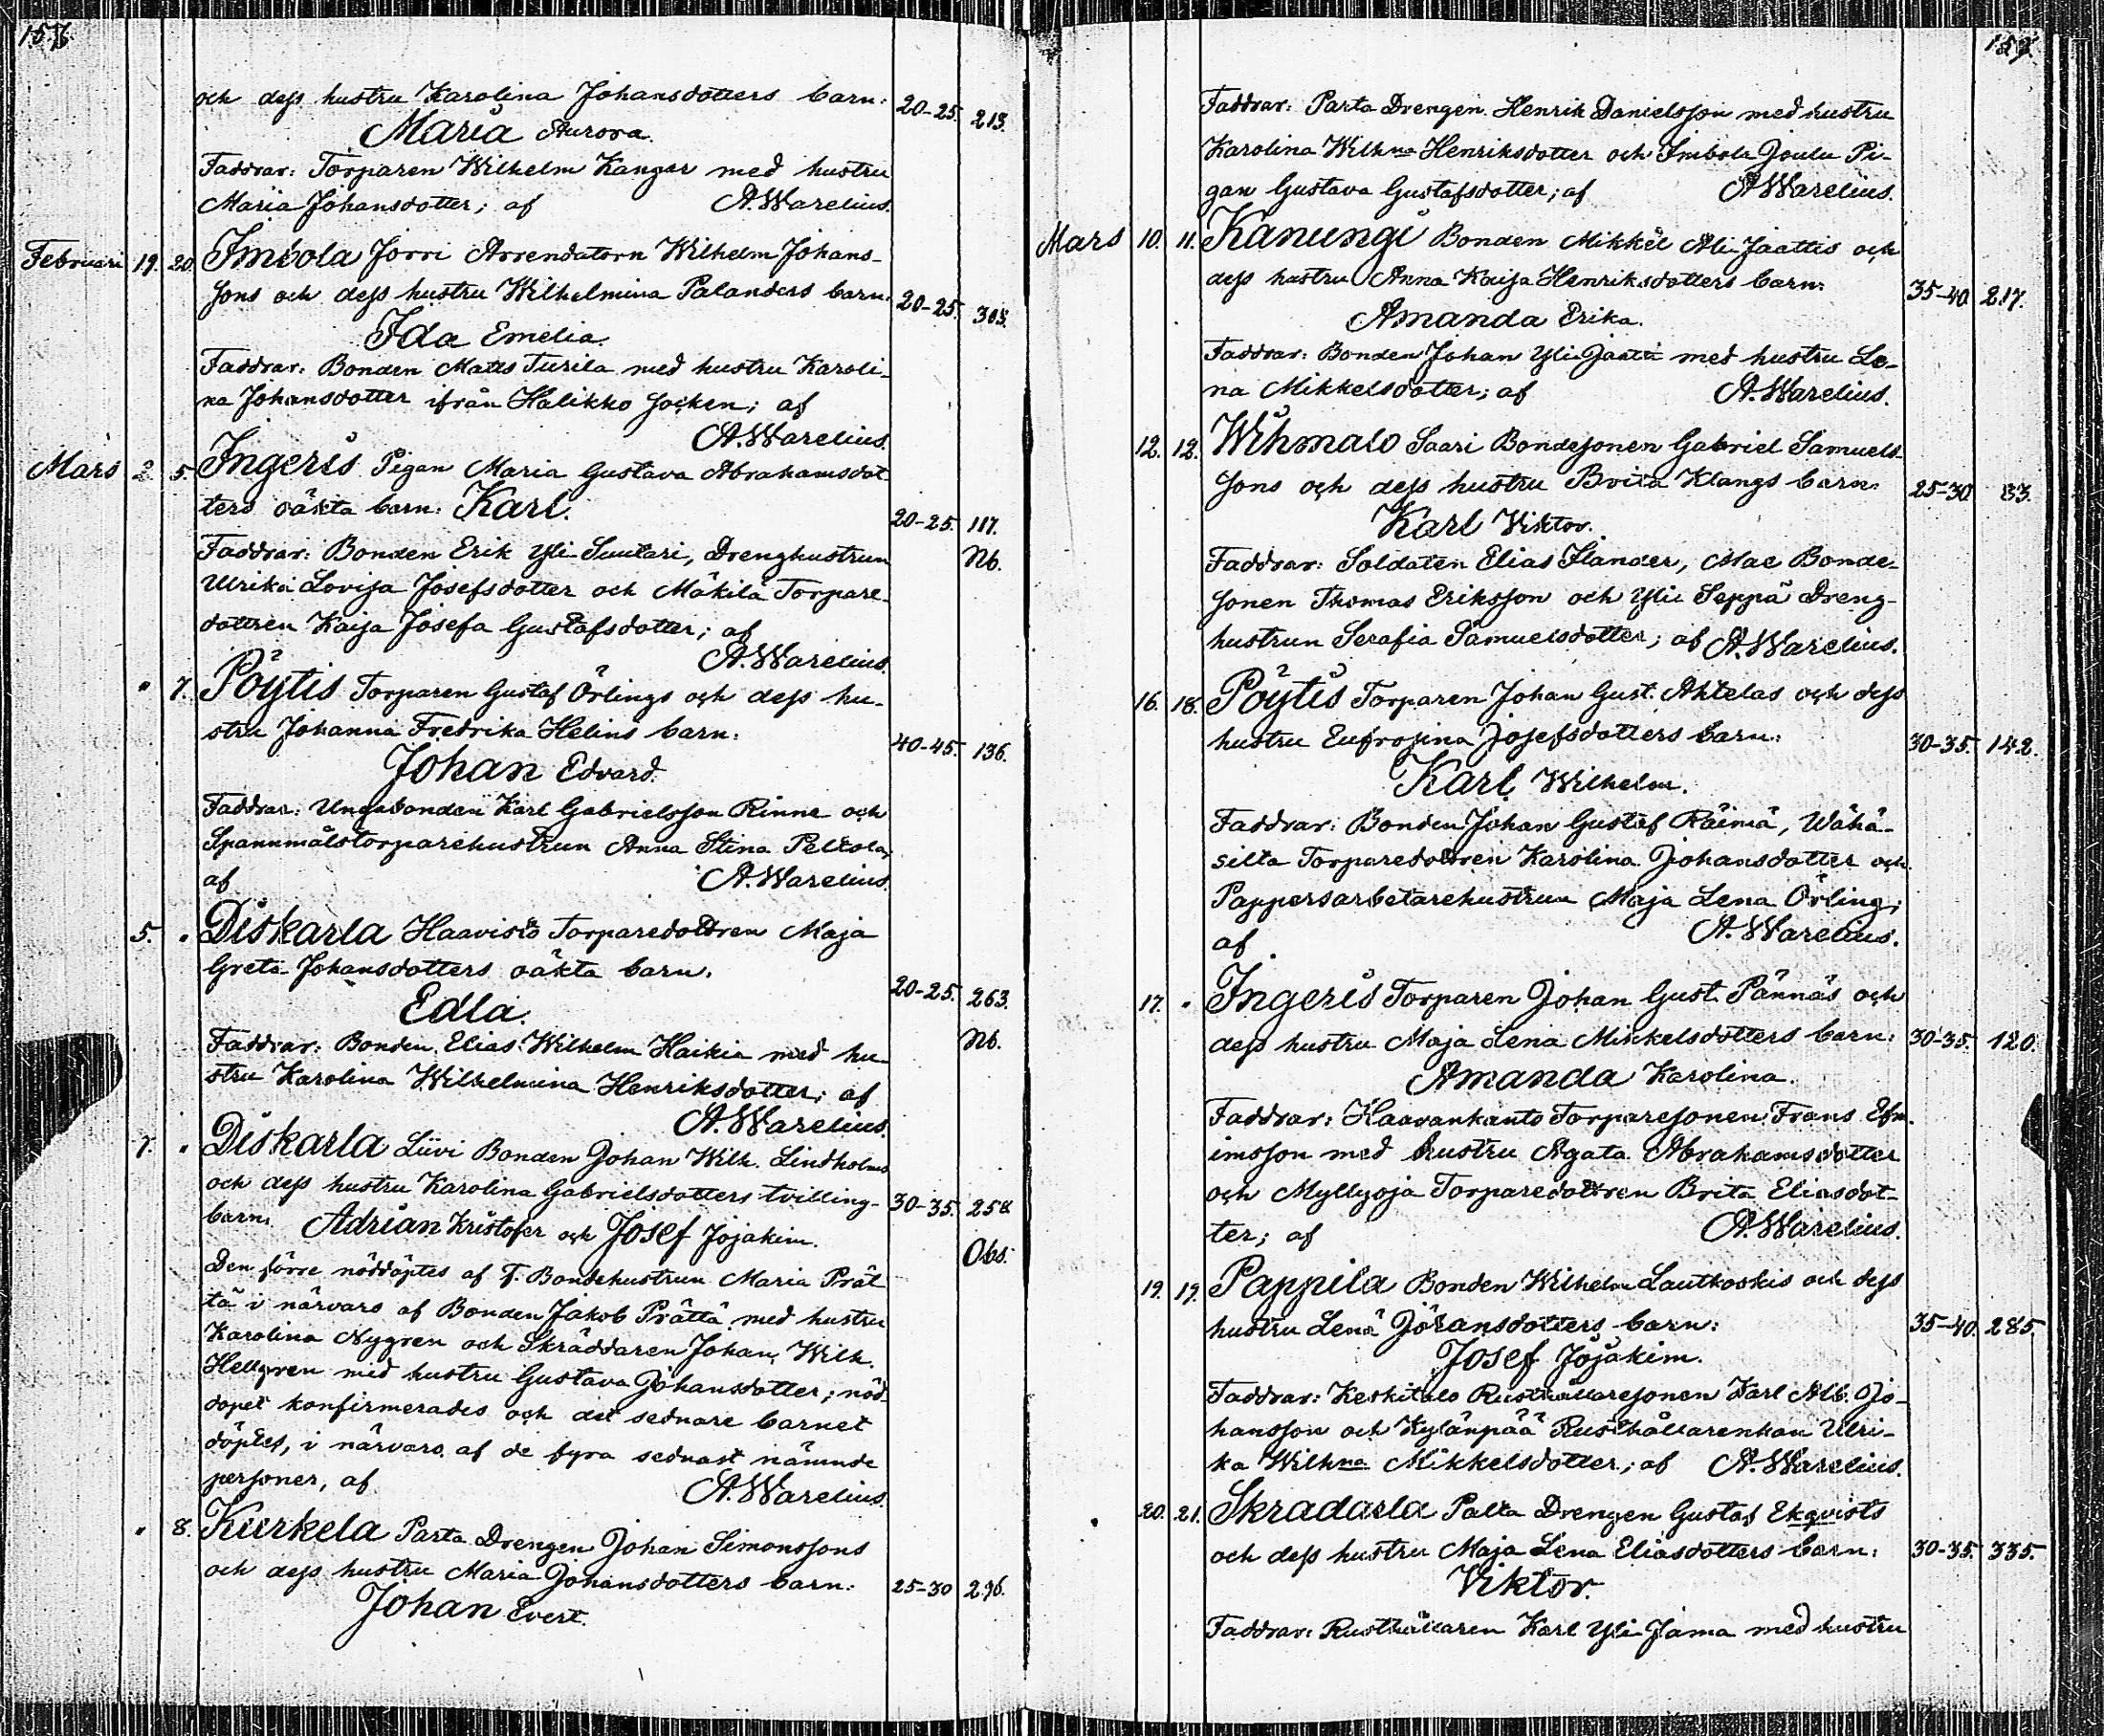 156.
och dess hustru Karolina Johansdotters barn: 20-25. 213.
Maria Aurora.
Faddrar: Torparen Wilhelm Kangar med hustru
Maria Johansdotter; af A. Warelius.
Februari 19. 20. Imbola Jorri Arrendatorn Wilhelm Johans-
sons och dess hustru Wilhelmina Palanders barn. 20-25. 305.
Ida Emelia.
Faddrar: Bonden Matts Turila med hustru Karoli-
na Johansdotter ifrån Halikko Socken; af
A. Warelius.
Mars 2. 5. Ingeris Pigan Maria Gustava Abrahamsdot-
ters oäkta barn: Karl. 20-25. 117.
Faddrar: Bonden Erik Yli-Suutari, Drenghustrun Nb.
Ulrika Lovisa Josefsdotter och Mäkilä Torpare-
dottren Kaija Josefa Gustafsdotter; af
A. Warelius.
" 7. Pöytis Torparen Gustaf Örlings och dess hu-
stru Johanna Fredrika Helins barn: 40-45. 136.
Johan Edvard.
Faddrar: Ungabonden Karl Gabrielsson Rinne och
Spannmålstorparehustrun Anna Stina Peltola,
af A. Warelius.
5. " Diskarla Haavisto Torparedottren Maja
Greta Johansdotters oäkta barn. 20-25. 263.
Edla.
Faddrar: Bonden Elias Wilhelm Haikia med hu- Nb.
stru Karolina Wilhelmina Henriksdotter; af
A. Warelius.
7. " Diskarla Liivi Bonden Johan Wilh. Lindholms
och dess hustru Karolina Gabrielsdotters tvilling- 30-35. 258
barn: Adrian Kristofer och Josef Jojakim. Obs.
Den förre nöddöptes af F. Bondehustrun Maria Prät-
tä i närvaro af Bonden Jakob Prättä med hustru
Karolina Nygren och Skräddaren Johan Wilh.
Hellgren med hustru Gustava Johansdotter; nöd-
dopet konfirmerades och det sednare barnet
döptes, i närvaro af de fyra sednast nämnde
personer, af A. Warelius.
" 8. Kurkela Parta Drengen Johan Simonssons
och dess hustru Maria Johansdotters barn: 25-30 296.
Johan Evert.
157.
Faddrar: Parta Drengen Henrik Danielsson med hustru
Karolina Wilhna Henriksdotter och Imbola Joulu Pi-
gan Gustava Gustafsdotter; af A. Warelius.
Mars 10. 11. Kanungi Bonden Mikkel Ali-Jaattis och
dess hustru Anna Kaisa Henriksdotters barn: 35-40 217.
Amanda Erika.
Faddrar: Bonden Johan Yli-Jaatti med hustru Le-
na Mikkelsdotter; af A. Warelius.
12. 12. Wihmalo Saari Bondesonen Gabriel Samuels-
sons och dess hustru Brita Klangs barn: 25-30 33.
Karl Viktor.
Faddrar: Soldaten Elias Ilander, Mae Bonde-
sonen Thomas Eriksson och Yli Seppä Dreng-
hustrun Serafia Samuelsdotter; af A. Warelius.
16. 18. Pöytis Torparen Johan Gust. Ahtelas och dess
hustru Eufrosina Josefsdotters barn: 30-35. 142.
Karl Wilhelm.
Faddrar: Bonden Johan Gustaf Räimä, Wähä-
silta Torparedottren Karolina Johansdotter och
Pappersarbetarehustrun Maja Lena Örling;
af A. Warelius.
17. " Ingeris Torparen Johan Gust. Pännäs och
dess hustru Maja Lena Mikkelsdotters barn: 30-35. 120.
Amanda Karolina.
Faddrar: Haavankanto Torparesonen Frans Efra-
imsson med hustru Agata Abrahamsdotter
och Myllyoja Torparedottren Brita Eliasdot-
ter; af A. Warelius.
19. 19. Pappila Bonden Wilhelm Lautkoskis och dess
hustru Lena Göransdotters barn: 35-40. 285.
Josef Jojakim.
Faddrar: Keskitalo Rusthållaresonen Karl Alb. Jo-
hansson och Kylänpää Rusthållarenkan Ulri-
ka Wilhna Mikkelsdotter; af A. Warelius.
20. 21. Skradarla Palta Drengen Gustaf Ekqvists
och dess hustru Maja Lena Eliasdotters barn: 30-35. 335.
Viktor.
Faddrar: Rusthållaren Karl Yli-Jama med hustru